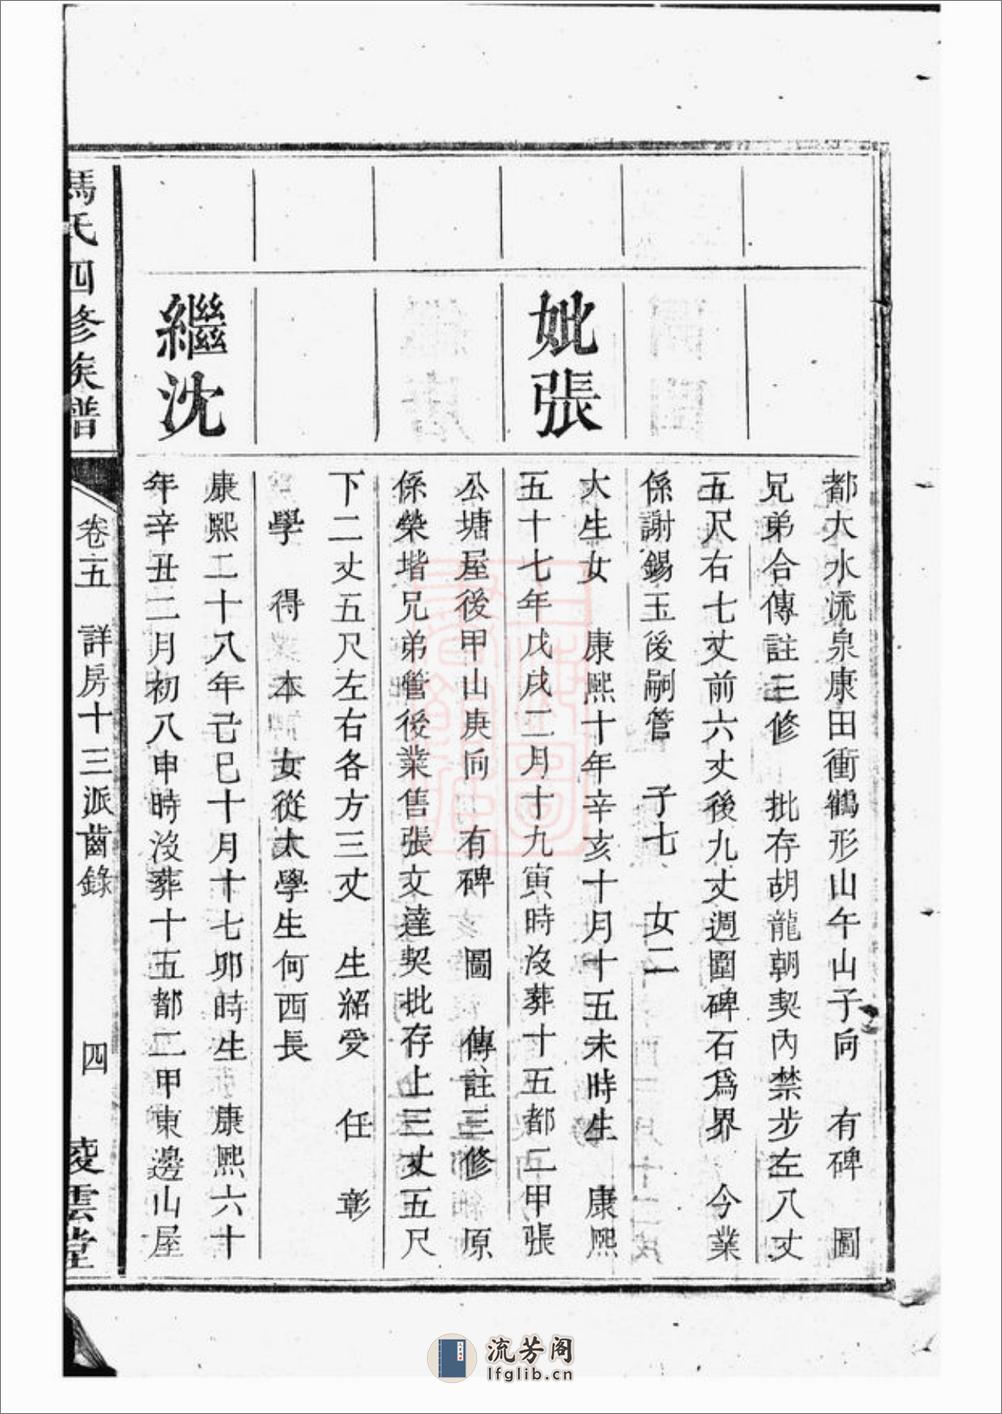 都大水流泉康田衝鶴形山午山子向　有碑　圖
兄弟合傳註三修　批存胡龍朝契內禁步左八丈
五尺右七丈前六丈後九丈週圍碑石爲界　今業
係謝錫玉後嗣管　子七　女二
妣張
大生女　康熙十年辛亥十月十五未時生　康熙
五十七年戊戌二月十九寅時沒葬十五都二甲張
公塘屋後甲山庚向　有碑　圖　傳註三修　原
係榮堦兄弟管後業售張文達契批存上三丈五尺
下二丈五尺左右各方三丈　生紹受　任　彰
學　得　本　女從太學生何酉長
繼沈
康熙二十八年己巳十月十七卯時生　康熙六十
年辛丑二月初八申時沒葬十五都二甲東邊山屋
馬氏四修族譜
卷五　詳房十三派齒錄　四　凌雲堂
流芳阁
lfglib.cn